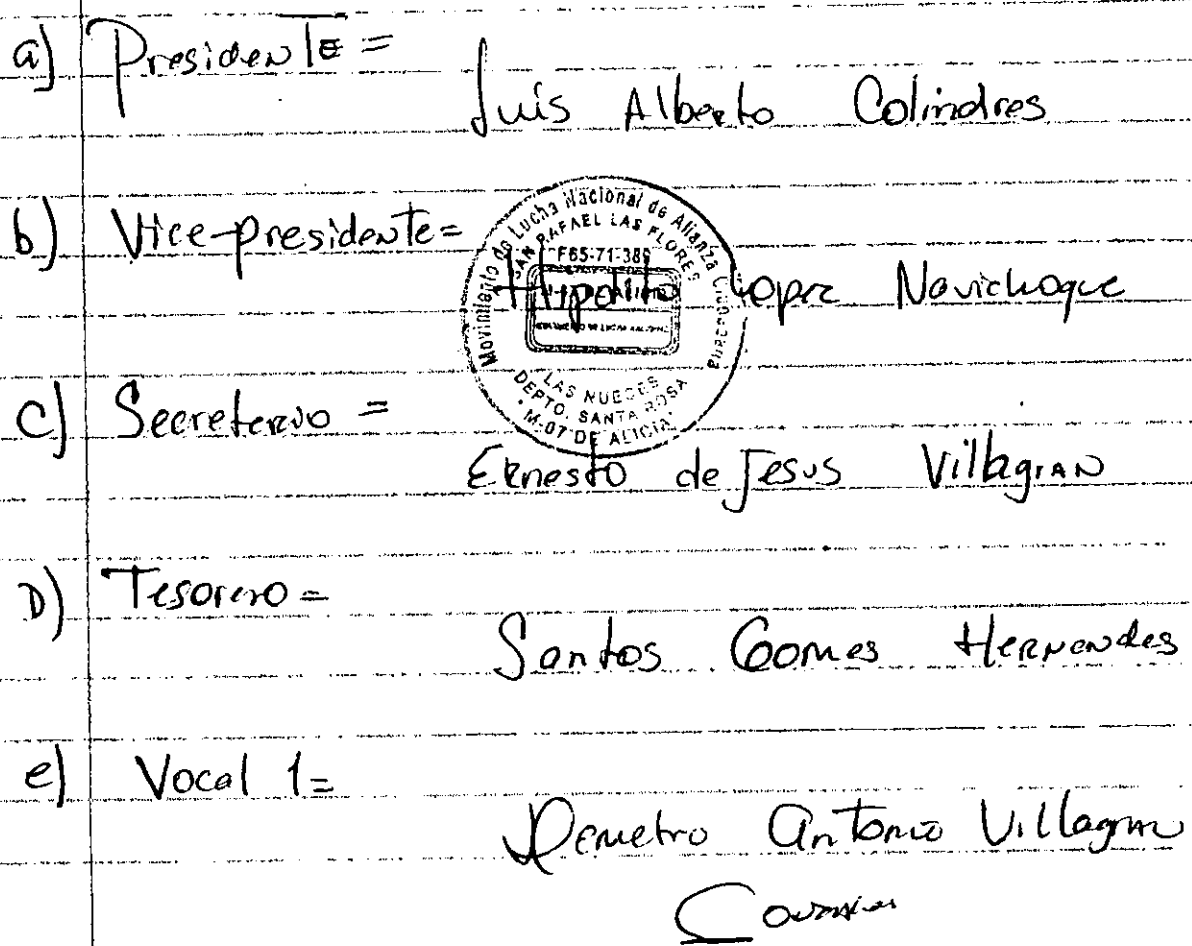 a) Presidente =
Luis Alberto Colindres
b) Vice-presidente=
Hipolito Lopez Navichoque
Movimiento de Lucha Nacional de Alianza
SAN RAFAEL LAS FLORES
F65-71-386
LAS NUECES
DEPTO. SANTA ROSA
M-07 DE ALICIA
c) Secreterio =
Ernesto de Jesus Villagran
D) Tesorero=
Santos Gomes Hernendes
e) Vocal 1=
Demetro Antonio Villagran